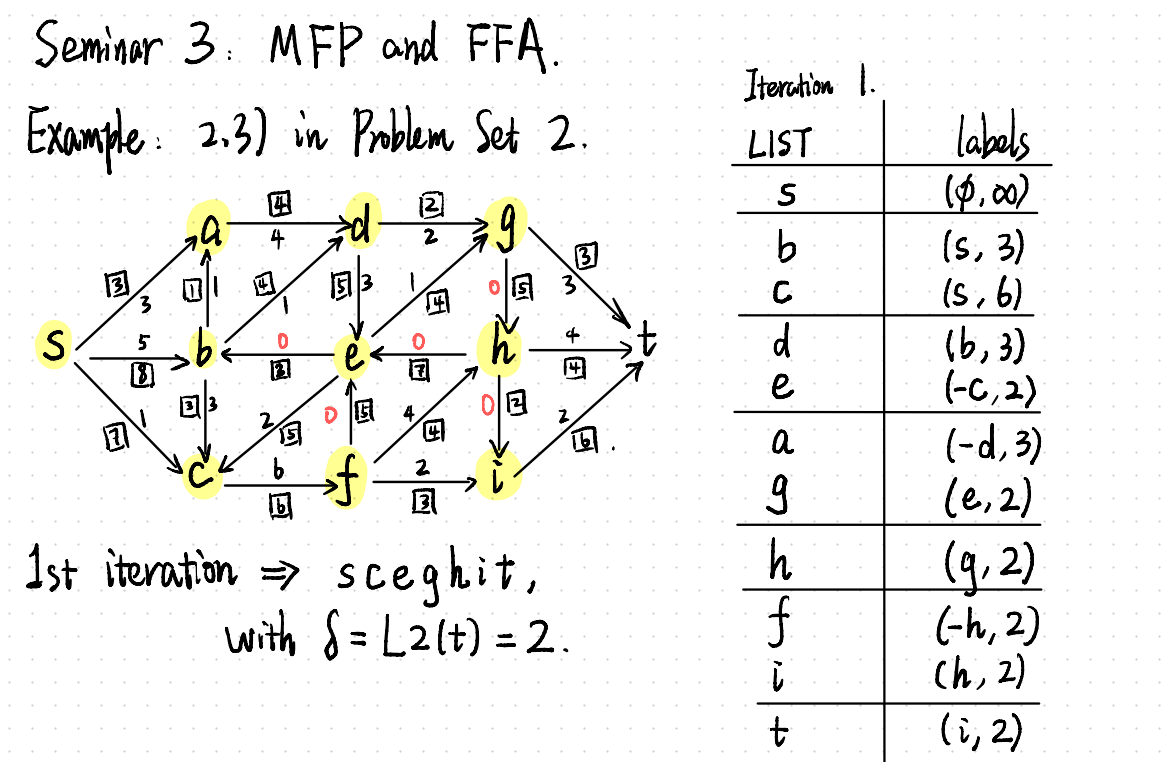 Seminar 3: MFP and FFA.
Example: 2.3) in Problem Set 2.
4
2
a
4
d
2
g
3
3
3
1
1
4
1
5
3
1
4
0
5
3
s
5
8
b
0
3
e
0
7
h
4
4
t
1
7
3
3
2
5
0
5
4
4
0
2
2
6
.
c
6
6
f
2
3
i
1st iteration ⇒ sceghit,
with δ = L2(t) = 2.
Iteration 1.
LIST labels
s (ϕ, ∞)
b (s, 3)
c (s, 6)
d (b, 3)
e (-c, 2)
a (-d, 3)
g (e, 2)
h (g, 2)
f (-h, 2)
i (h, 2)
t (i, 2)